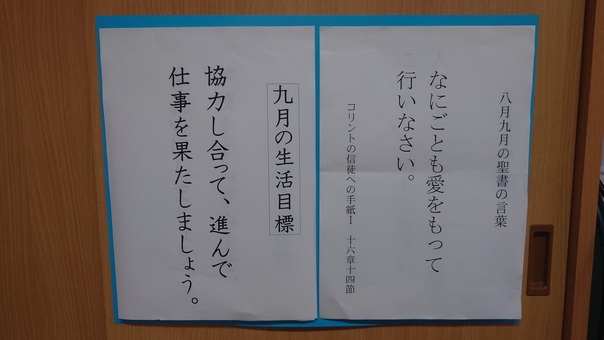 八月九月の聖書の言葉
なにごとも愛をもって
行いなさい。
コリントの信徒への手紙Ⅰ 十六章十四節
九月の生活目標
協力し合って、進んで
仕事を果たしましょう。